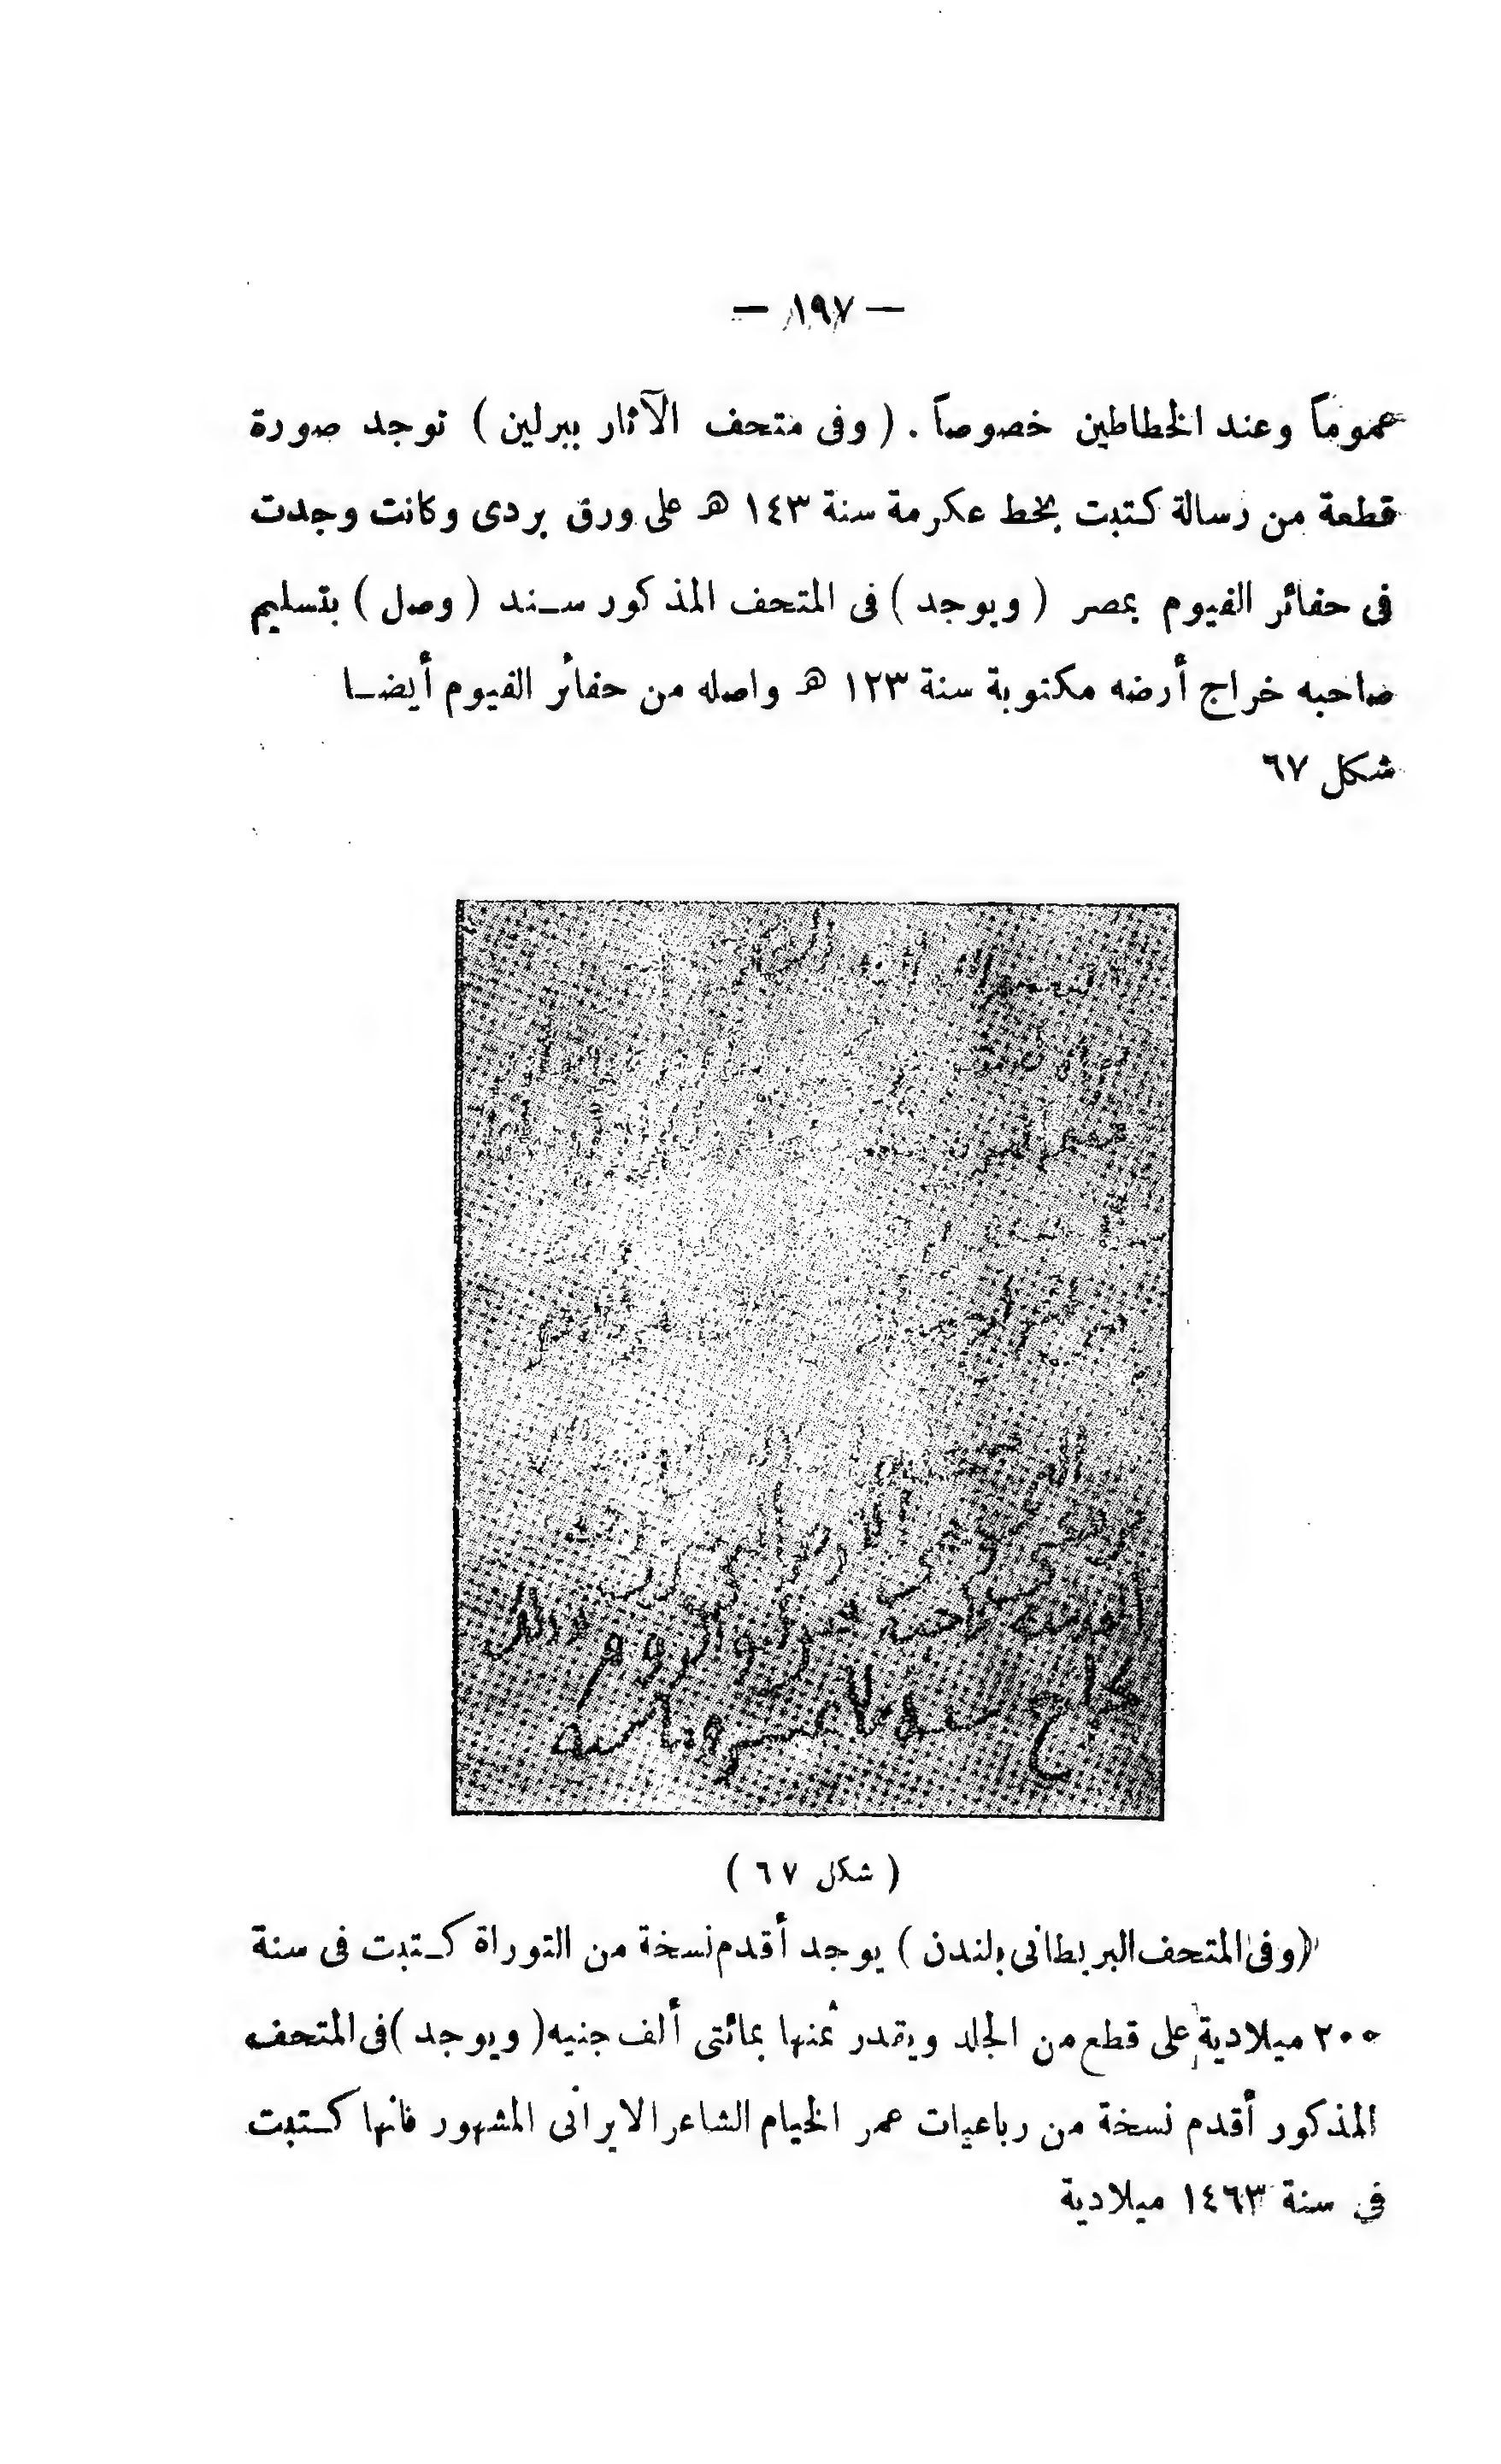 — ١٩٧ —
عموماً وعند الخطاطين خصوصاً . ( وفى متحف الآثار ببرلين ) توجد صورة
قطعة من رسالة كتبت بخط عكرمة سنة ١٤٣ هـ على ورق بردى وكانت وجدت
فى حفائر الفيوم بمصر ( ويوجد ) فى المتحف المذكور سـند ( وصل ) بتسليم
صاحبه خراج أرضه مكتوبة سنة ١٢٣ هـ واصله من حفائر الفيوم أيضـا
شكل ٦٧
( شكل ٦٧ )
( وفى المتحف البريطانى بلندن ) يوجد أقدم نسخة من التوراة كـتبت فى سنة
٢٠٠ ميلادية على قطع من الجلد ويقدر ثمنها بمائتى ألف جنيه ( ويوجد ) فى المتحف
المذكور أقدم نسخة من رباعيات عمر الخيام الشاعر الايرانى المشهور فانها كـتبت
فى سنة ١٤٦٣ ميلادية